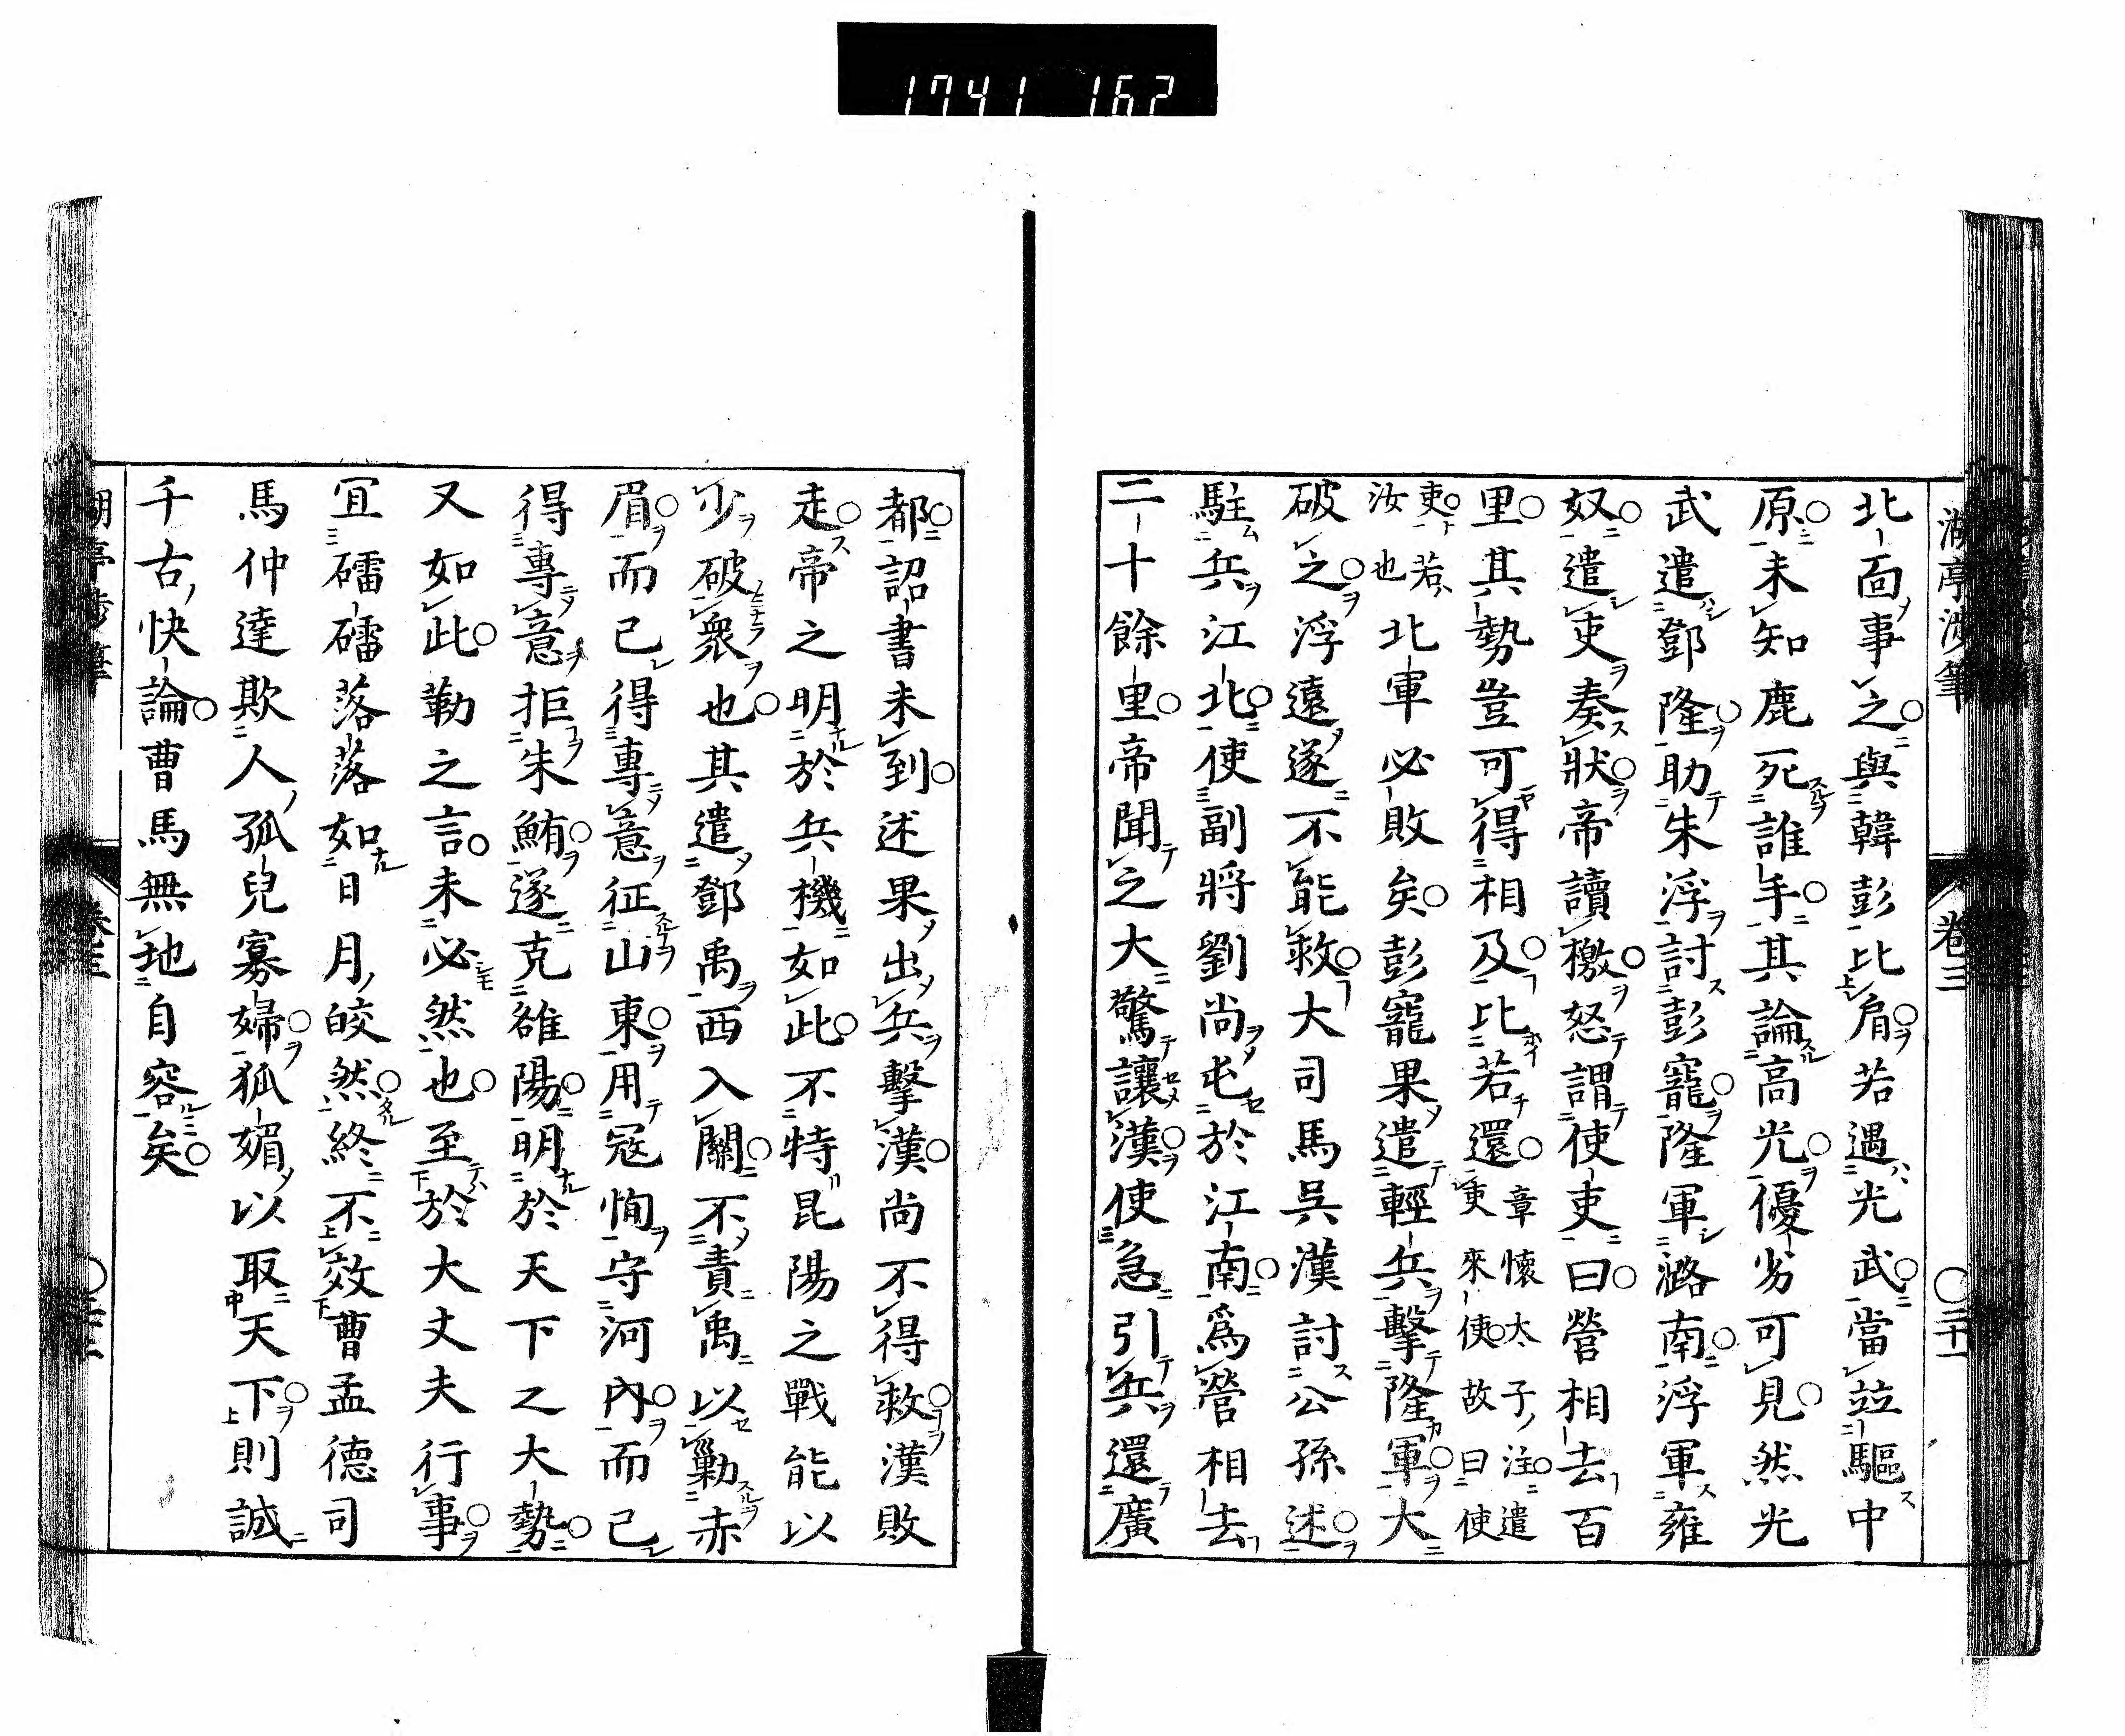 1741 162
湖亭涉筆 卷三 〇二十一
北面事之與韓彭比肩若遇光武當竝驅中
原未知鹿死誰手其論高光優劣可見然光
武遣鄧隆助朱浮討彭寵隆軍潞南浮軍雍
奴遣吏奏狀帝讀檄怒謂使吏曰營相去百
里其勢豈可得相及比若還章懷太子注遣吏來使故曰使
吏若汝也北軍必敗矣彭寵果遣輕兵擊隆軍大
破之浮遠遂不能救大司馬吳漢討公孫述
駐兵江北使副將劉尚屯於江南爲營相去
二十餘里帝聞之大驚讓漢使急引兵還廣
都詔書未到述果出兵擊漢尚不得救漢敗
走帝之明於兵機如此不特昆陽之戰能以
少破衆也其遣鄧禹西入關不責禹以勦赤
眉而已得專意征山東用寇恂守河內而已
得專意拒朱鮪遂克雒陽明於天下之大勢
又如此勒之言未必然也至於大丈夫行事
冝礌礌落落如日月皎然終不效曹孟德司
馬仲達欺人孤兒寡婦狐媚以取天下則誠
千古快論曹馬無地自容矣
湖亭涉筆